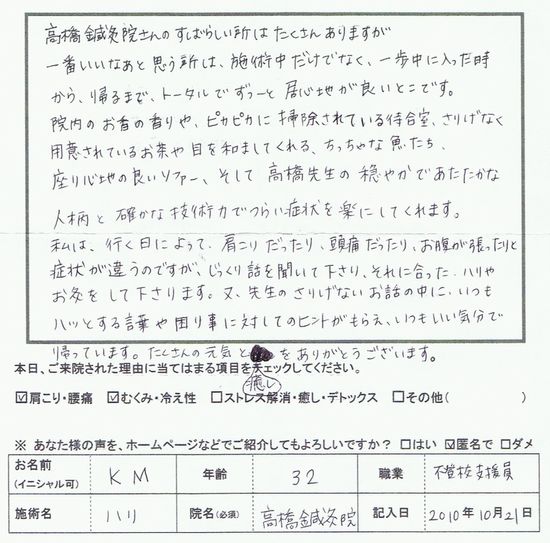 高橋鍼灸院さんのすばらしい所はたくさんありますが
一番いいなあと思う所は、施術中だけでなく、一歩中に入った時
から、帰るまで、トータルでずーっと居心地が良いとこです。
院内のお香の香りや、ピカピカに掃除されている待合室、さりげなく
用意されているお茶や目を和ましてくれる、ちっちゃな魚たち、
座り心地の良いソファー、そして高橋先生の穏やかであたたかな
人柄と確かな技術力でつらい症状を楽にしてくれます。
私は、行く日によって、肩こりだったり、頭痛だったり、お腹が張ったりと
症状が違うのですが、じっくり話を聞いて下さり、それに合った、ハリや
お灸をして下さります。又、先生のさりげないお話の中に、いつも
ハッとする言葉や困り事に対してのヒントがもらえ、いつもいい気分で
帰っています。たくさんの元気と癒しをありがとうございます。
本日、ご来院された理由に当てはまる項目をチェックしてください。
☑肩こり・腰痛 ☑むくみ・冷え性 □ストレス解消・癒し・デトックス □その他( )
※ あなた様の声を、ホームページなどでご紹介してもよろしいですか? □はい ☑匿名で □ダメ
お名前 (イニシャル可) KM 年齢 32 職業 不登校支援員
施術名 ハリ 院名(必須) 高橋鍼灸院 記入日 2010年10月21日